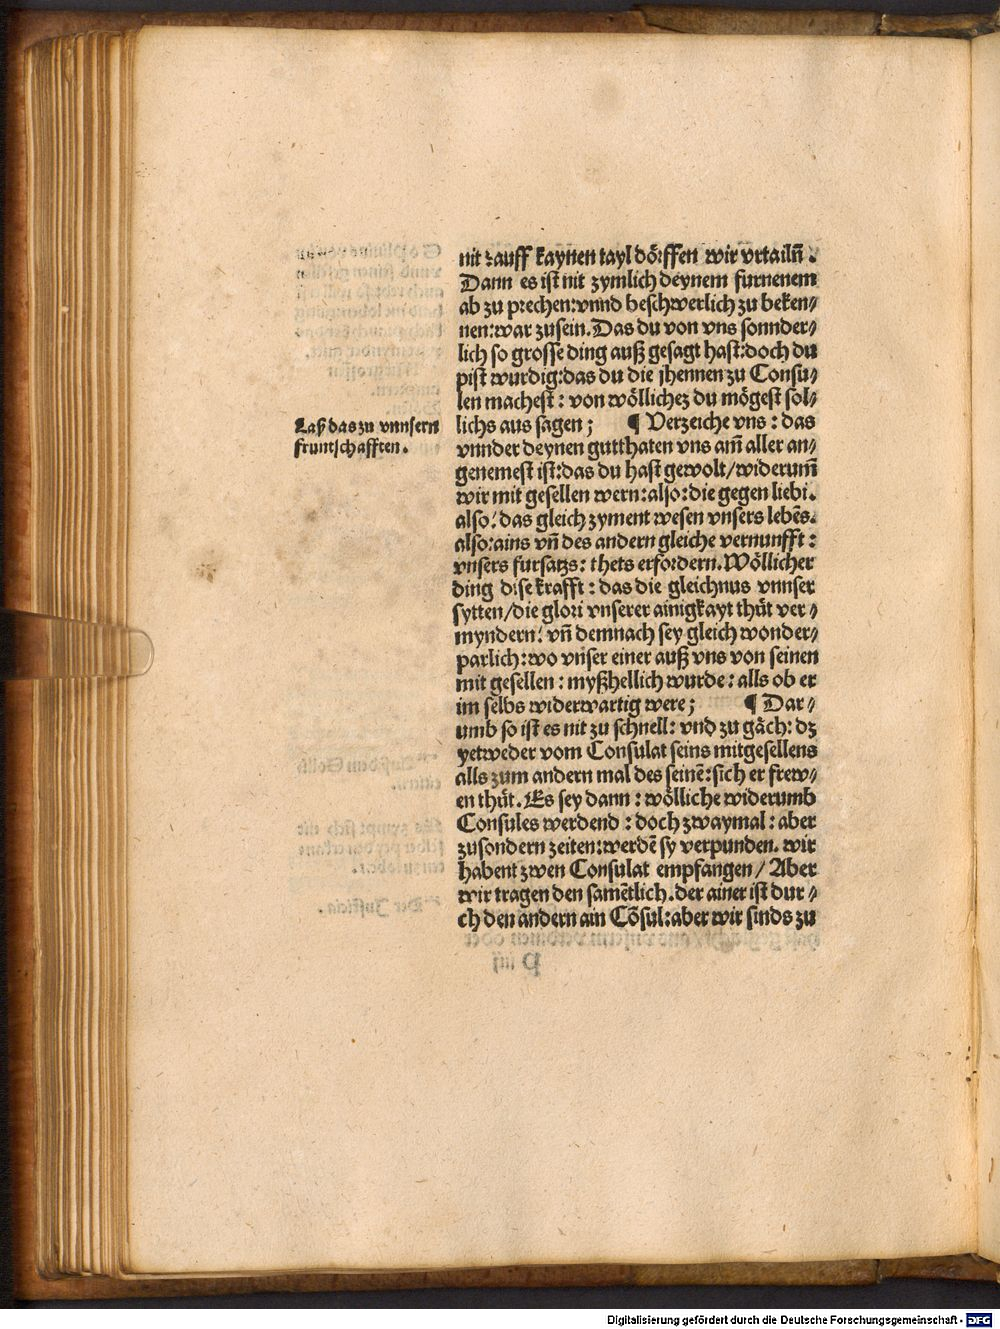 nit ꝛauff kaynen tayl dörffen wir vrtailn̄ .
Dann es ist nit zymlich deynem furnenem
ab zu prechen:vnnd beschwerlich zu beken⸗
nen:war zusein. Das du von vns sonnder⸗
lich so grosse ding auß gesagt hast:doch du
pist wurdig:das du die jhennen zu Consu⸗
len machest : von wöllichez du mögest sol⸗
lichs aus sagen ; ¶ Verzeiche vns : das
vnnder deynen gutthaten vns am̄ aller an⸗
genemest ist:das du hast gewolt/widerum̄
wir mit gesellen wern:also:die gegen liebi.
also: das gleich zyment wesen vnsers lebēs.
also:ains vn̄ des andern gleiche vernunfft :
vnsers fursatzs: thets erfordern. Wöllicher
ding dise krafft : das die gleichnus vnnser
sytten/die glori vnserer ainigkayt thüt ver⸗
myndern: vn̄ demnach sey gleich wonder⸗
parlich:wo vnser einer auß vns von seinen
mit gesellen : myßhellich wurde : alls ob er
im selbs widerwartig were ; ¶ Dar⸗
umb so ist es nit zu schnell: vnd zu gäch: dz
yetweder vom Consulat seins mitgesellens
alls zum andern mal des seinē: sich er frew⸗
en thüt. Es sey dann : wölliche widerumb
Consules werdend : doch zwaymal : aber
zusondern zeiten:werdē sy verpunden. wir
habent zwen Consulat empfangen / Aber
wir tragen den samētlich. der ainer ist dur⸗
ch den andern ain Cōsul:aber wir sinds zu
Laß das zu vnnsern
fruntschafften .
Digitalisierung gefördert durch die Deutsche Forschungsgemeinschaft - DFG